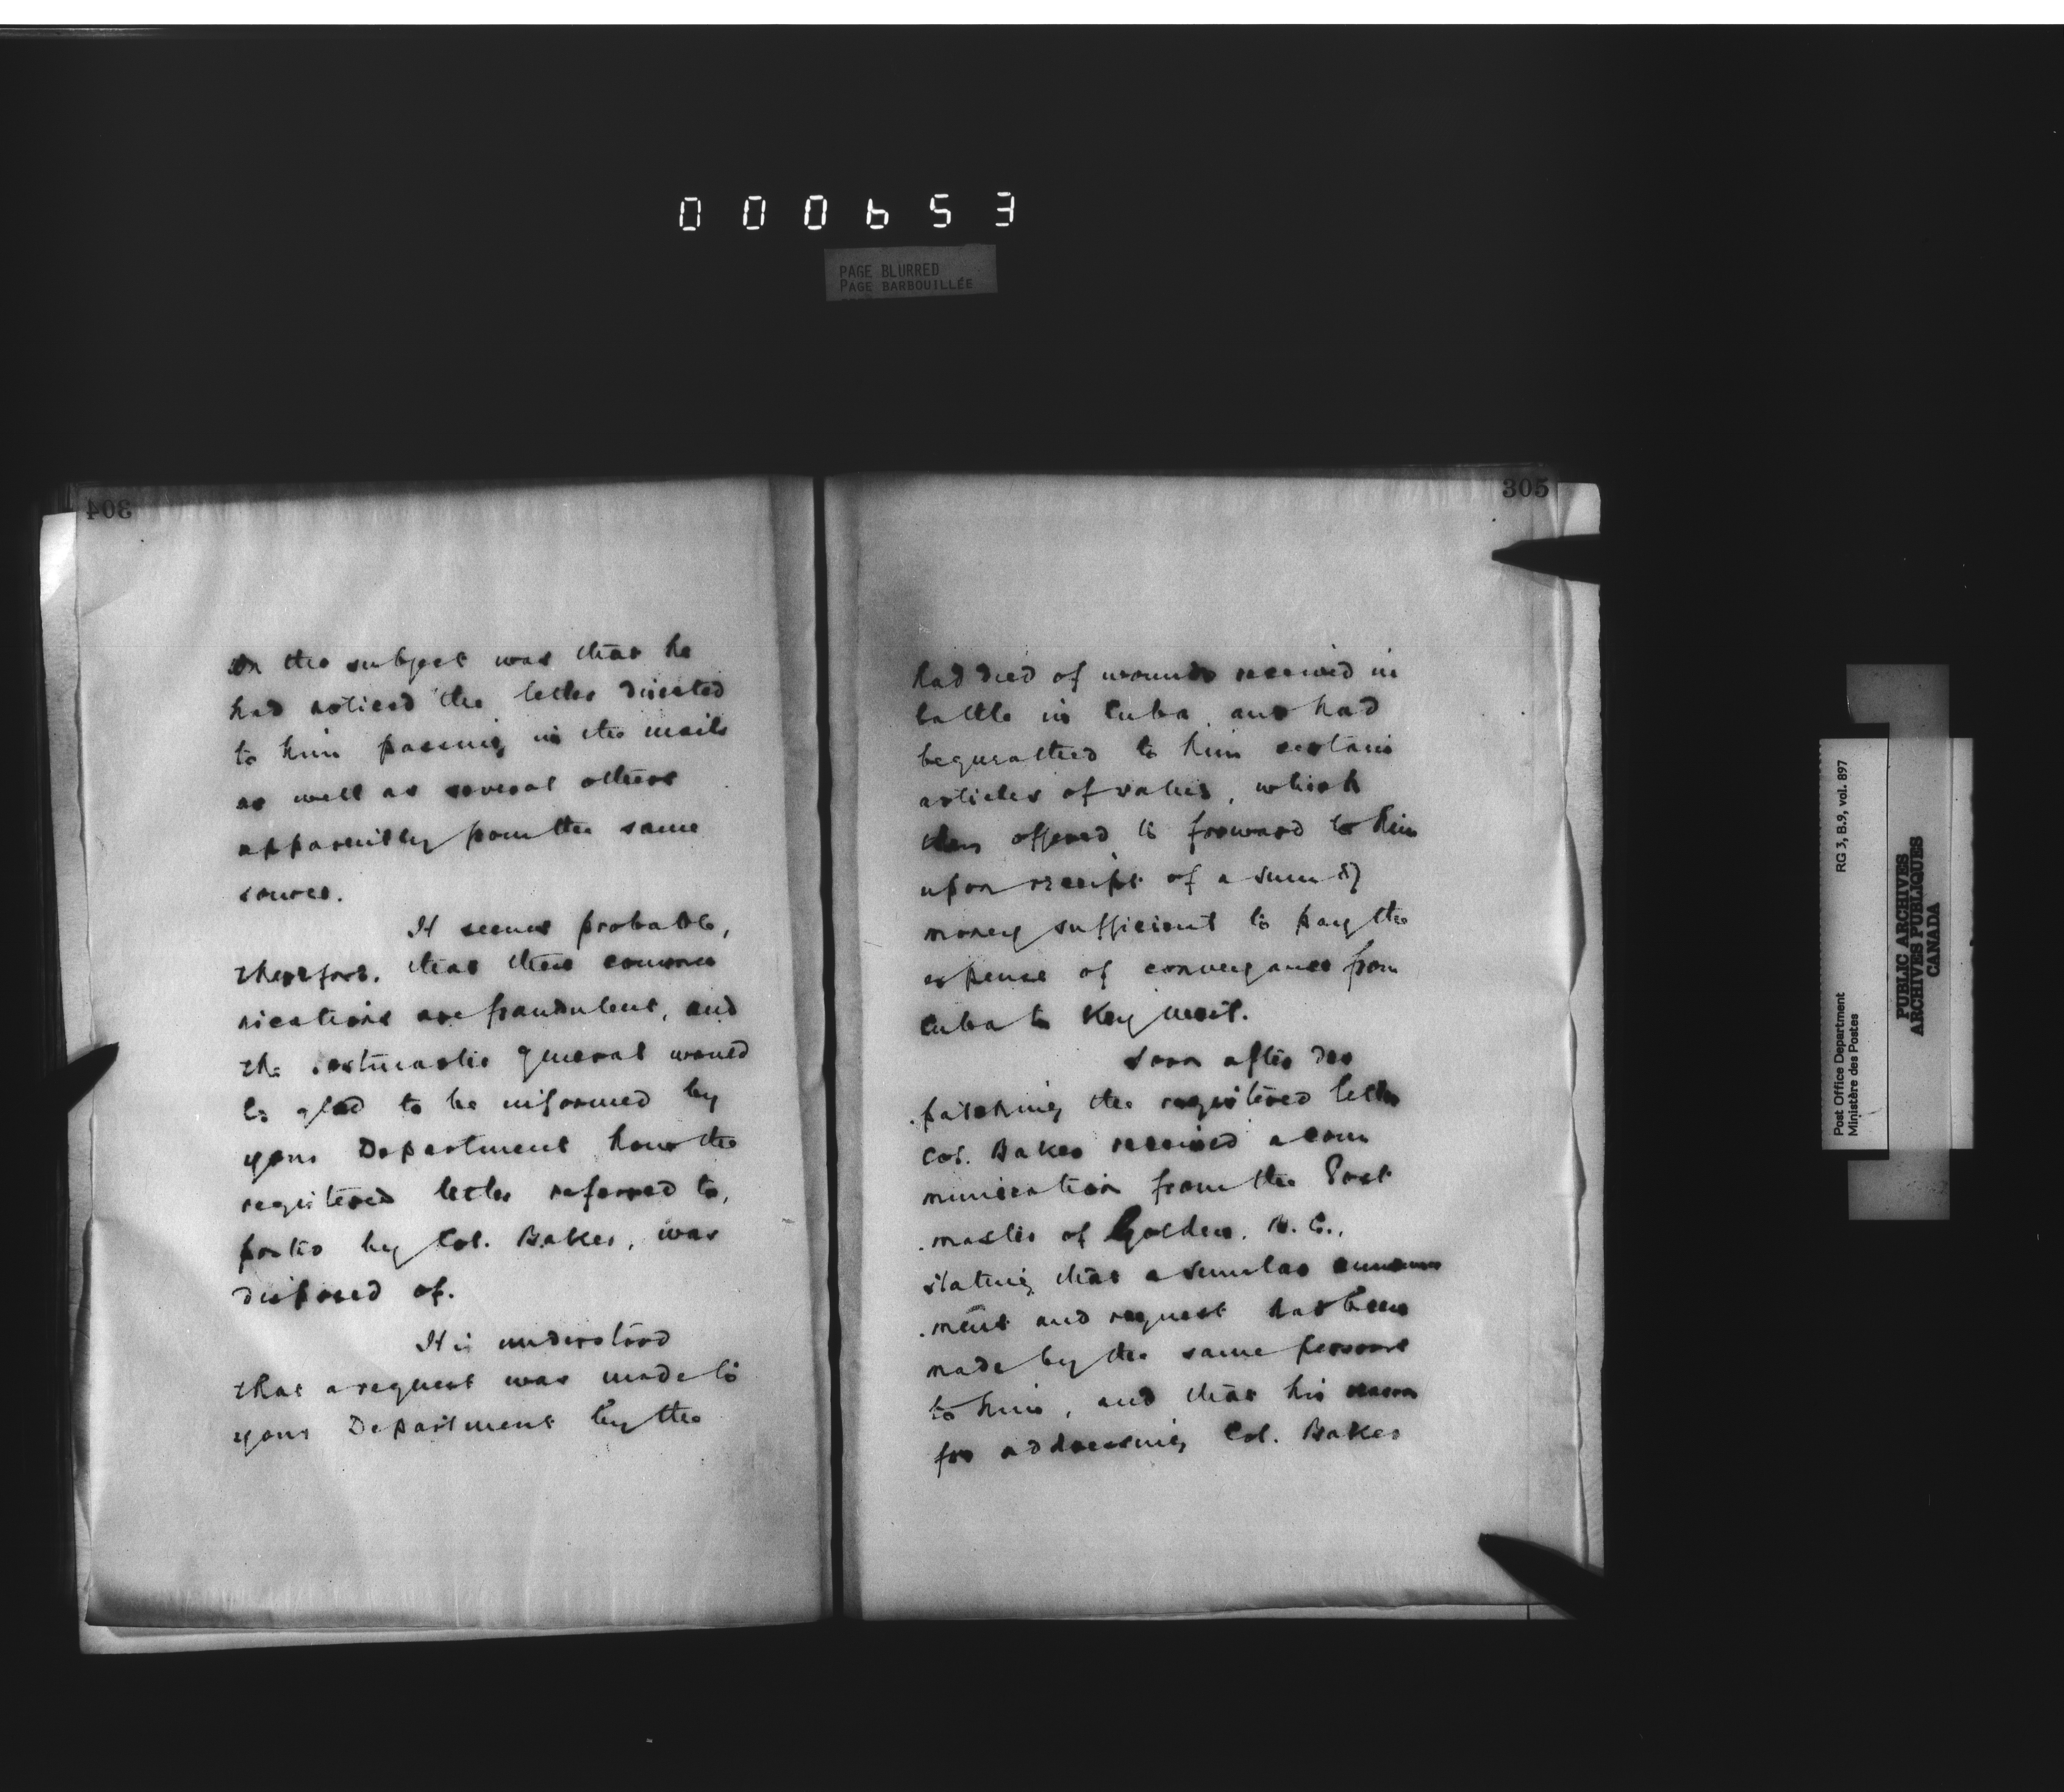 000653
PAGE BLURRED
PAGE BARBOUILLÉE
304
on the subject was that he
had noticed the letter directed
to him passing in the mails
as well as several others
apparently from the same
source.
It seems probable,
therefore, that these commu
nications are fraudulent, and
the Postmaster General would
be glad to be informed by
your Department how the
registered letter referred to,
posted by Col. Baker, was
disposed of.
It is understood
that a request was made to
your Department by the
305
had died of wounds received in
battle in Cuba, and had
bequeathed to him certain
articles of value, which
they offered to forward to him
upon receipt of a sum of
money sufficient to pay the
expense of conveyance from
Cuba to Key West.
Soon after des
patching the registered letter
Col. Baker received a com
munication from the Post
master of Golden, B.C.,
stating that a similar announce
ment and request has been
made by the same persons
to him, and that his reason
for addressing Col. Baker
Post Office Department RG 3, B.9, vol. 897
Ministère des Postes
PUBLIC ARCHIVES
ARCHIVES PUBLIQUES
CANADA